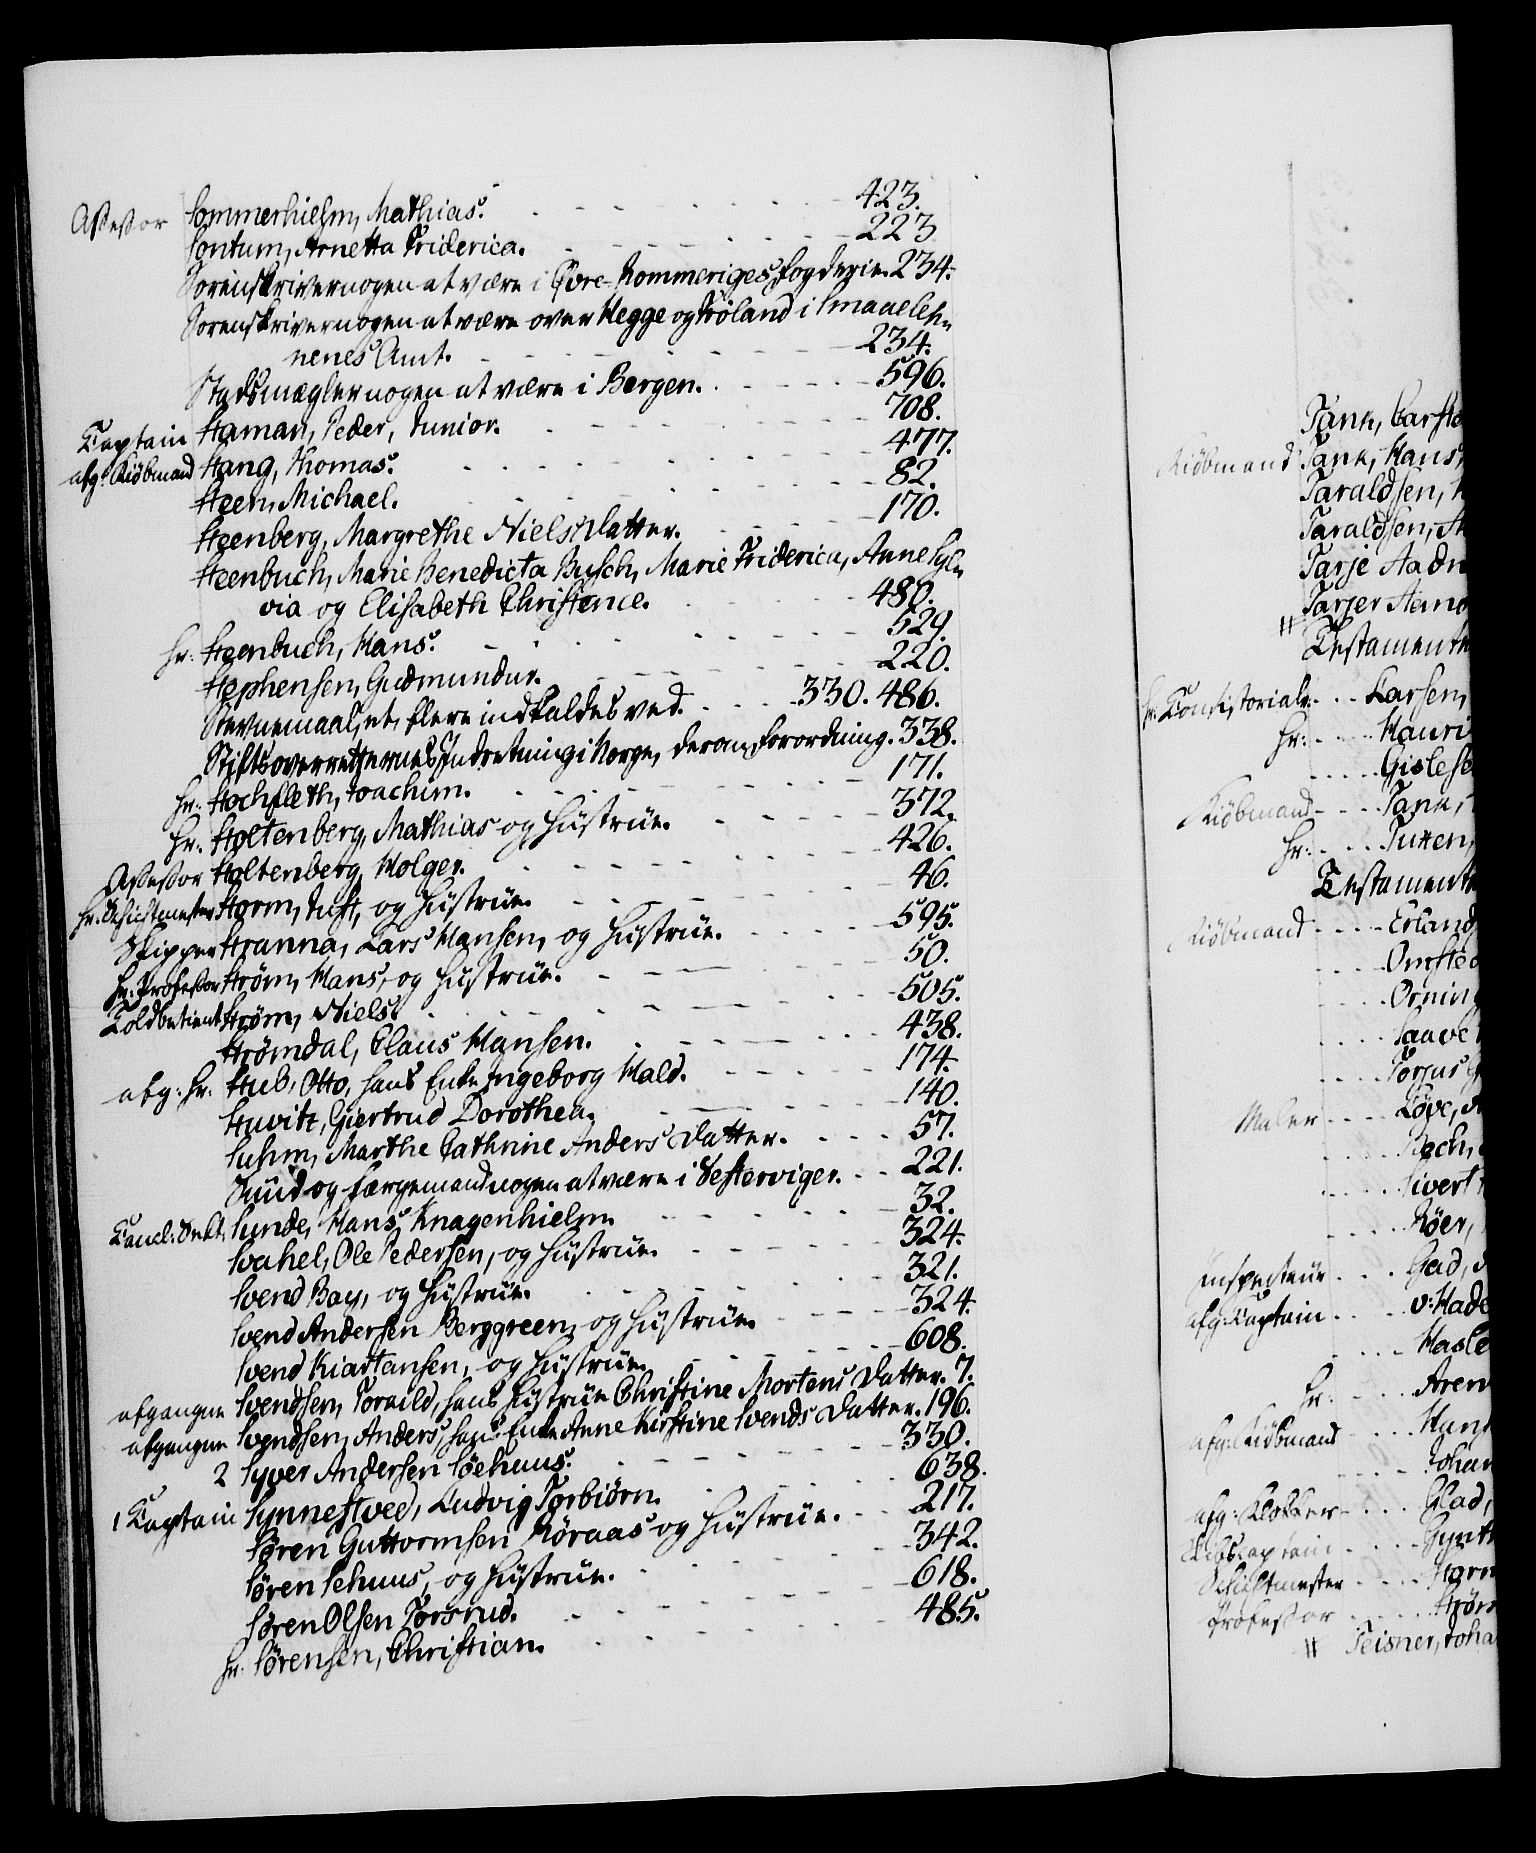 Assessor Sommerhielm, Mathias. 423.
Sontum, Arnetta Friderica. 223
Sorenskriver nogen at være i Øvre-Rommeriges Fogderie. 234.
Sorenskriver nogen at være over Hegge og Frøland i Smaaleh-
nenes Amt. 234.
Stadsmægler nogen at være i Bergen. 596.
Captain Staman, Peder, Junior. 708.
afg: Kiøbmand Stang, Thomas. 477.
Steen, Michael. 82.
Steenberg, Margrethe Niels Datter. 170.
Steenbuch, Marie Benedicta Busch, Marie Friderica, Anne Syl-
via og Elisabeth Christence. 480.
hr: Steenbuch, Hans. 529.
Stephensen, Gudmundur. 220.
Stevnemaal, et, flere indkaldes ved. 330. 486.
Stiftsoverretternes Indretning i Norge, derom Forordning. 338.
hr: Stochfleth, Joachim. 171.
hr: Stoltenberg, Mathias og Hustrue. 372.
Assessor Stoltenberg, Holger. 426.
hr: Schichtmester Storm, Just, og Hustrue. 46.
Skipper Stranna, Lars Hansen, og Hustrue. 595.
hr: Professor Strøm, Hans, og Hustrue. 50.
Toldbetient Strøm, Niels. 505.
Strømdal, Claus Hansen. 438.
afg: hr: Stub, Otto, hans Enke Ingeborg Hald. 174.
Stuvitz, Giertrud Dorothea. 140.
Suhm, Marthe Cathrine Anders Datter. 57.
Sund og Færgemand nogen at være i Vesterviger. 221.
Cancl: Sunde, Hans Knagenhielm. 32.
Svahel, Ole Pedersen, og Hustrue. 324.
Svend Bay, og Hustrue. 321.
Svend Andersen Berggreen, og Hustrue. 324.
Svend Kiartansen, og Hustrue. 608.
afgangne Svendsen, Toraild, hans Hustrue Christine Mortens Datter. 7.
afgangne Svendsen, Anders, hans Enke Anne Kirstine Svends Datter. 196.
2 Syver Andersen Söehuus. 330.
1 Captain Synnestved, Ludvig Torbiørn. 638.
Søren Guttormsen Røraas og Hustrue. 217.
Søren Sehuus, og Hustrue. 342.
Søren Olsen Torsrud. 618.
hr: Sørensen, Christian. 485.
Tank, Carste
Kiøbmand Tank, Hans,
Taraldsen,
Taraldsen,
Tarje Aadn
Tarjer
Testamente
hr: Consistorialr: Larsen,
hr: Mauri
Gislese
Kiøbmand Tank,
hr: Tuxen,
Testament
Kiøbmand Erland
Omsted
Orning
Saave
Torsus
Maler Løve,
Bech,
Sivert
Røer,
Inspecteur Gad,
afg: Captain v: Hade
Hasle
hr: Aren
afg: Kiøbmand Hans
Johan
afg: Klokker Glad,
Skibscaptain Gynth
Schichtmester Storm
Professor Strøm
Teisner, Joha